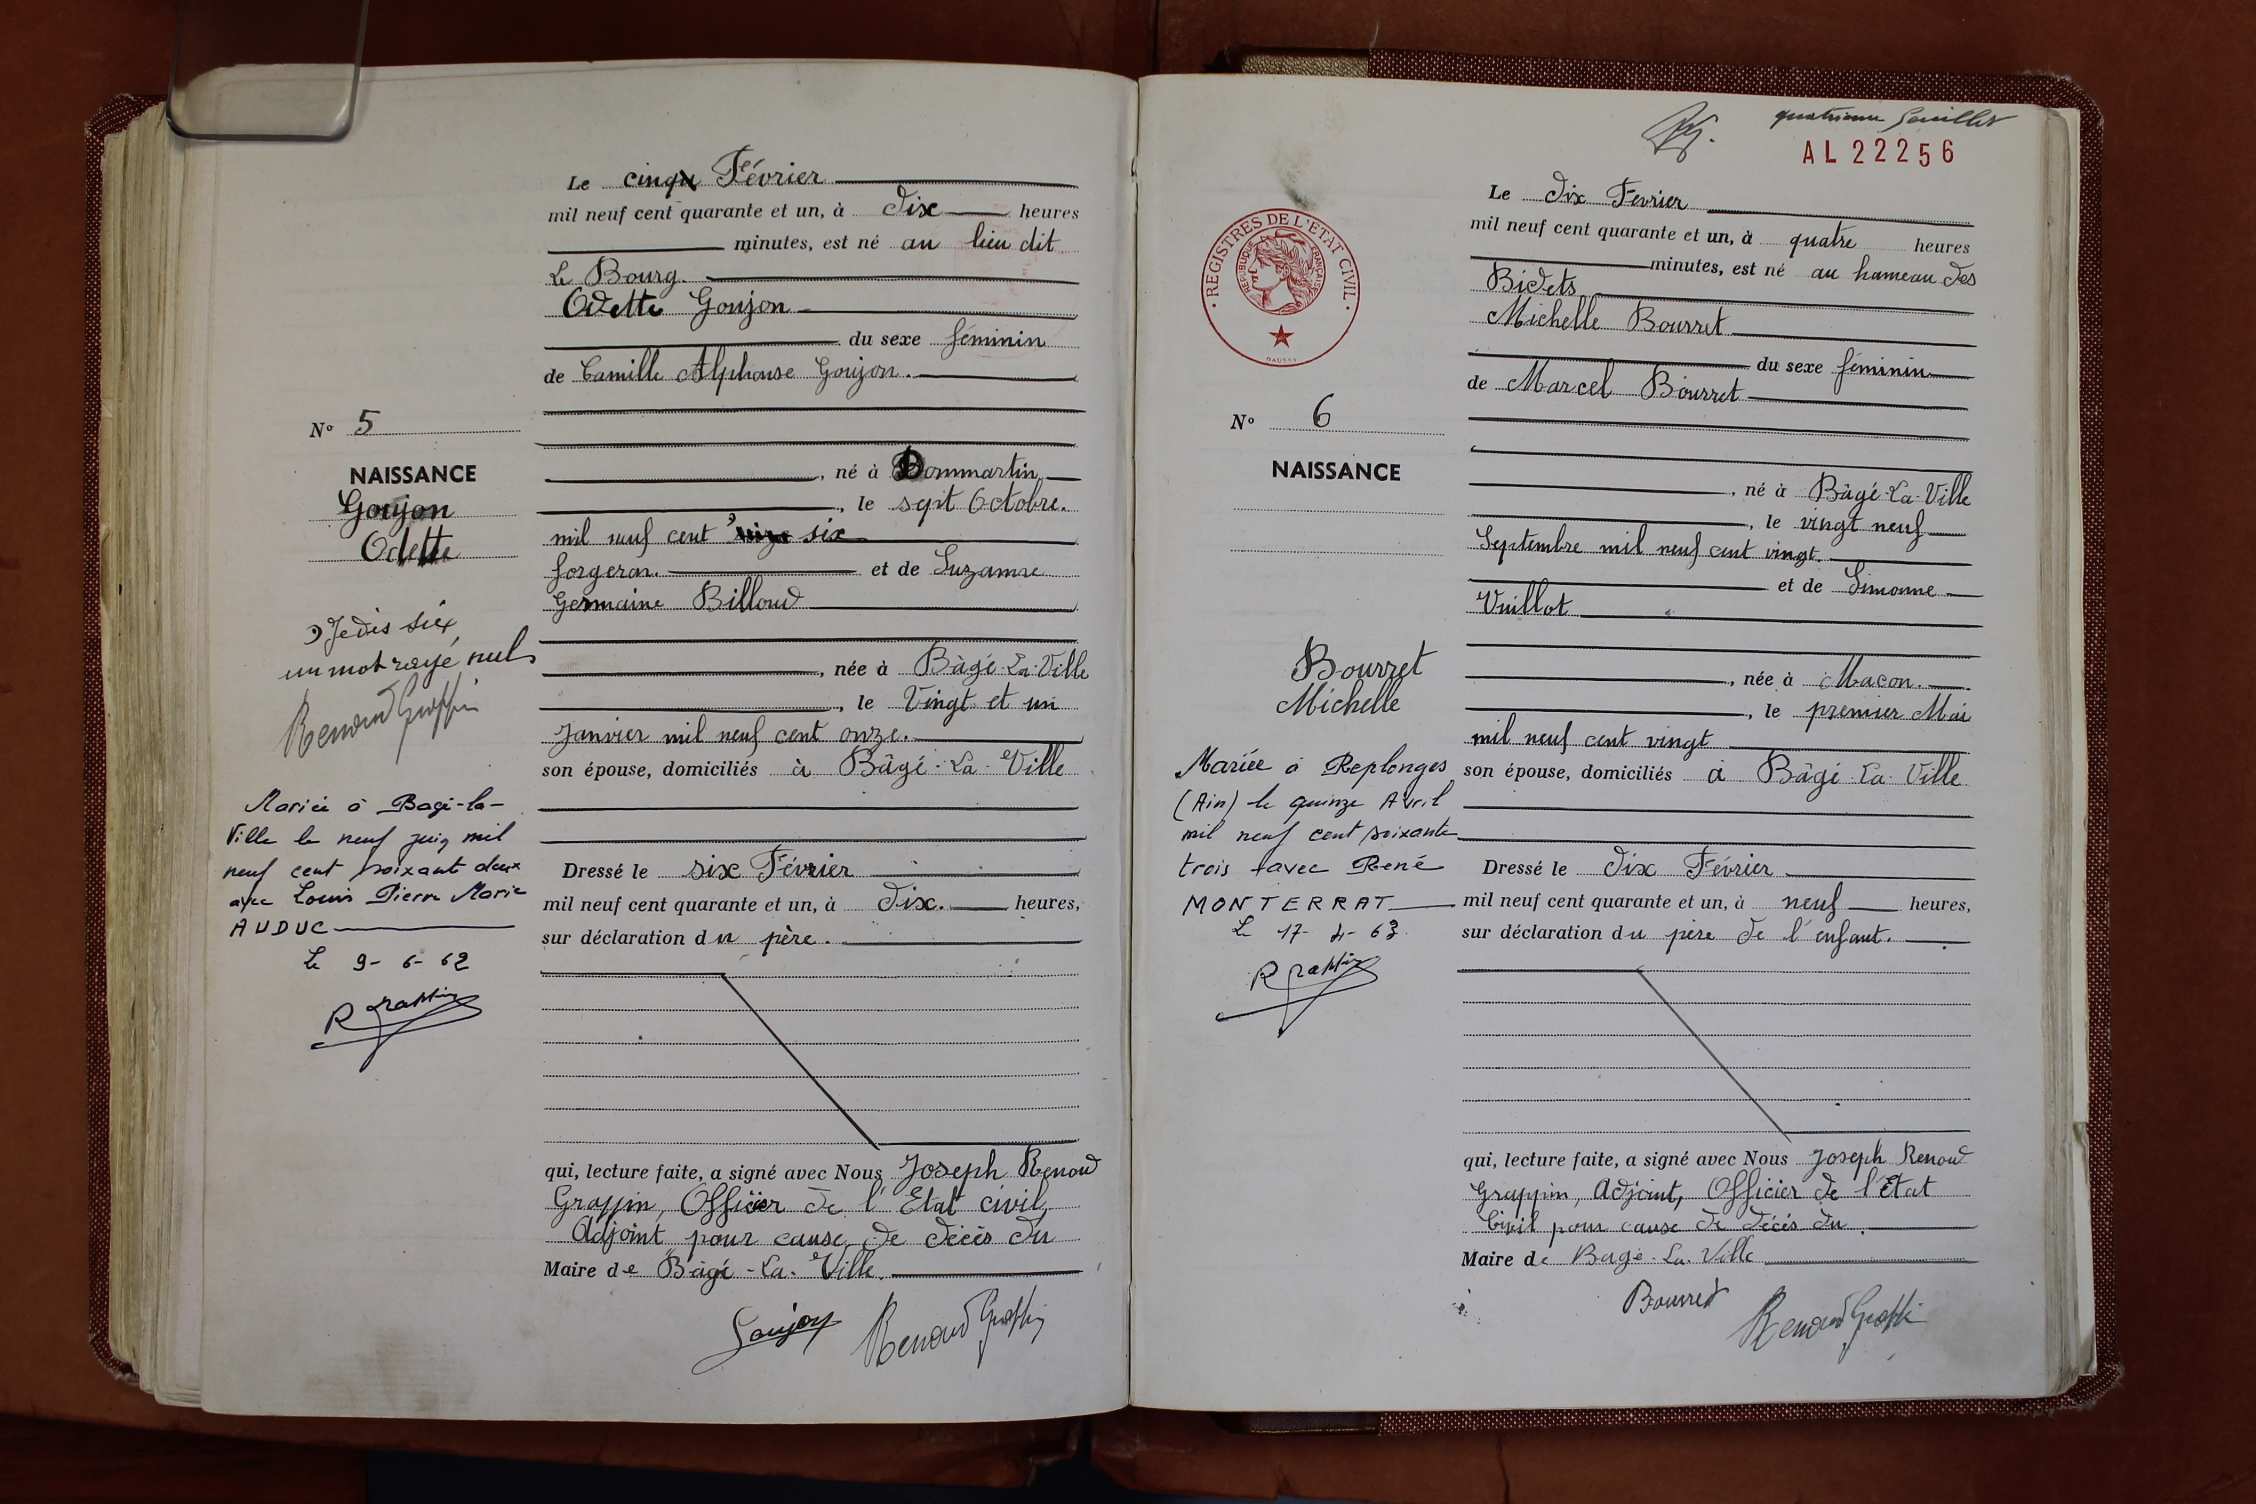 Le cinq Février
mil neuf cent quarante et un, à dix heures
minutes, est né au lieu dit
Le Bourg.
Odette Goujon
du sexe féminin
de Camille Alphonse Goujon.
N° 5
né à Dommartin
NAISSANCE
, le sept Octobre.
Goujon
Odette
mil neuf cent six
forgeron. et de Suzanne
Germaine Billoud
Je dis six
un mot rayé nul
Renoud Grappin
, née à Bâgé-La-Ville
, le Vingt et un
Janvier mil neuf cent onze.
son épouse, domiciliés à Bâgé-La-Ville
Mariée à Bagé-la-
Ville le neuf juin mil
neuf cent soixant deux
avec Louis Pierre Marie
AUDUC
Le 9-6-62
R Grappin
Dressé le six Février
mil neuf cent quarante et un, à dix. heures,
sur déclaration du père.
qui, lecture faite, a signé avec Nous Joseph Renoud
Grappin, Officier de l'Etat civil,
Adjoint pour cause de décès du
Maire de Bâgé-La-Ville.
Goujon Renoud Grappin
quatrième feuillet
AL 22256
REGISTRES DE L'ETAT CIVIL
REPUBLIQUE FRANÇAISE
Le dix Fevrier
mil neuf cent quarante et un, à quatre heures
minutes, est né au hameau des
Bidets
Michelle Bourret
du sexe féminin
de Marcel Bourret
N° 6
NAISSANCE
, né à Bâgé-La-Ville
, le vingt neuf
Septembre mil neuf cent vingt.
et de Simonne
Vuillot
Bourret
Michelle
, née à Macon.
, le premier Mai
mil neuf cent vingt
son épouse, domiciliés à Bâgé-La-Ville
Mariée à Replonges
(Ain) le quinze Avril
mil neuf cent soixante
trois avec René
MONTERRAT
Le 17-4-63
R Grappin
Dressé le dix Février
mil neuf cent quarante et un, à neuf heures,
sur déclaration du père de l'enfant.
qui, lecture faite, a signé avec Nous Joseph Renoud
Grappin, Adjoint, Officier de l'Etat
Civil pour cause de décès du
Maire de Bagé-La-Ville
Bourret Renoud Grappin